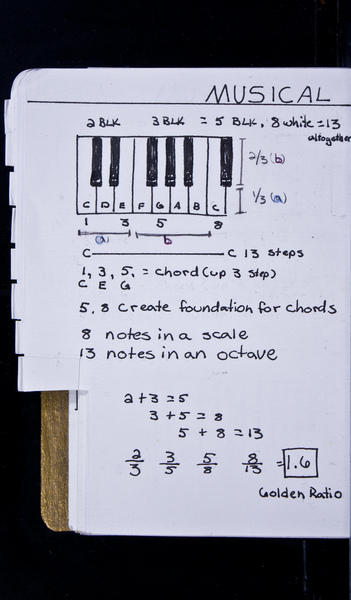 MUSICAL
2 BLK 3 BLK = 5 BLK, 8 white = 13
altogether
2/3 (b)
1/3 (a)
C D E F G A B C
1 3 5 8
(a) b
C C 13 steps
1, 3, 5, = chord (up 3 step)
C E G
5, 8 create foundation for chords
8 notes in a scale
13 notes in an octave
2 + 3 = 5
3 + 5 = 8
5 + 8 = 13
2/3 3/5 5/8 8/13 = 1.6
Golden Ratio